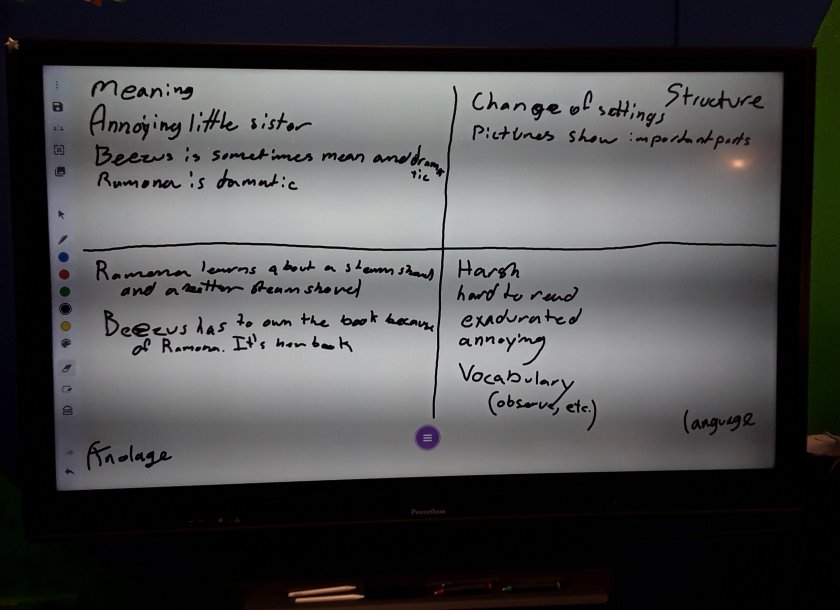 Meaning
Annoying little sistor
Beezus is sometimes mean and dramatic
Ramona is damatic
Structure
Change of settings
Pictures show important parts
Ramona learns about a steam shovel
and a steam shovel
Beezus has to own the book because
of Ramona. It's her book
Knolage
Harsh
hard to read
exadurated
annoying
Vocabulary
(observe, etc.)
language
Promethean